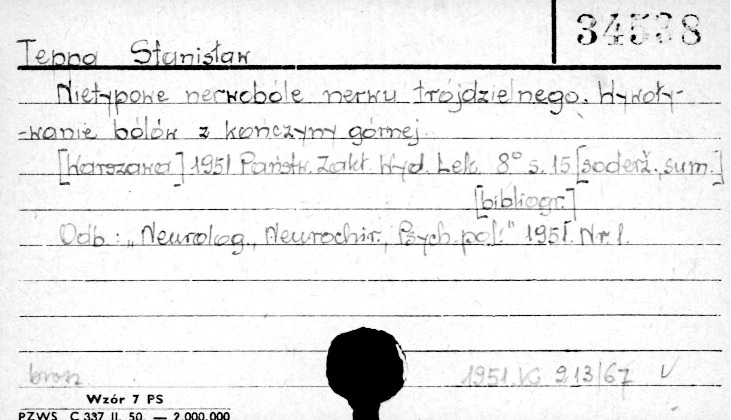 34538
Teppa Stanisław
Nietypowe nerwobóle nerwu trójdzielnego. Wywoły-
-wanie bólów z kończyny górnej.
[Warszawa] 1951 Państw. Zakł. Wyd. Lek. 8° s. 15 [soderž., sum.]
[bibliogr.]
Odb.: „Neurolog., Neurochir., Psych. pol." 1951. Nr. 1.
brosz
1951. K 213/67 V
Wzór 7 PS
PZWS C 337 II. 50. — 2.000.000